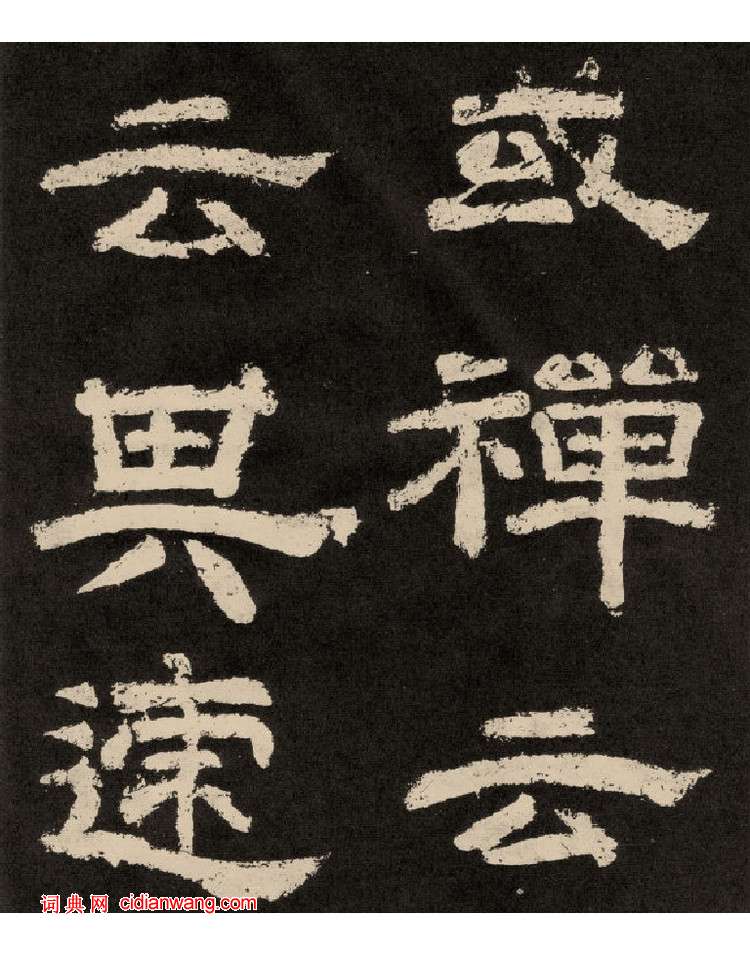 或禪云
云其迹
词典网 cidianwang.com